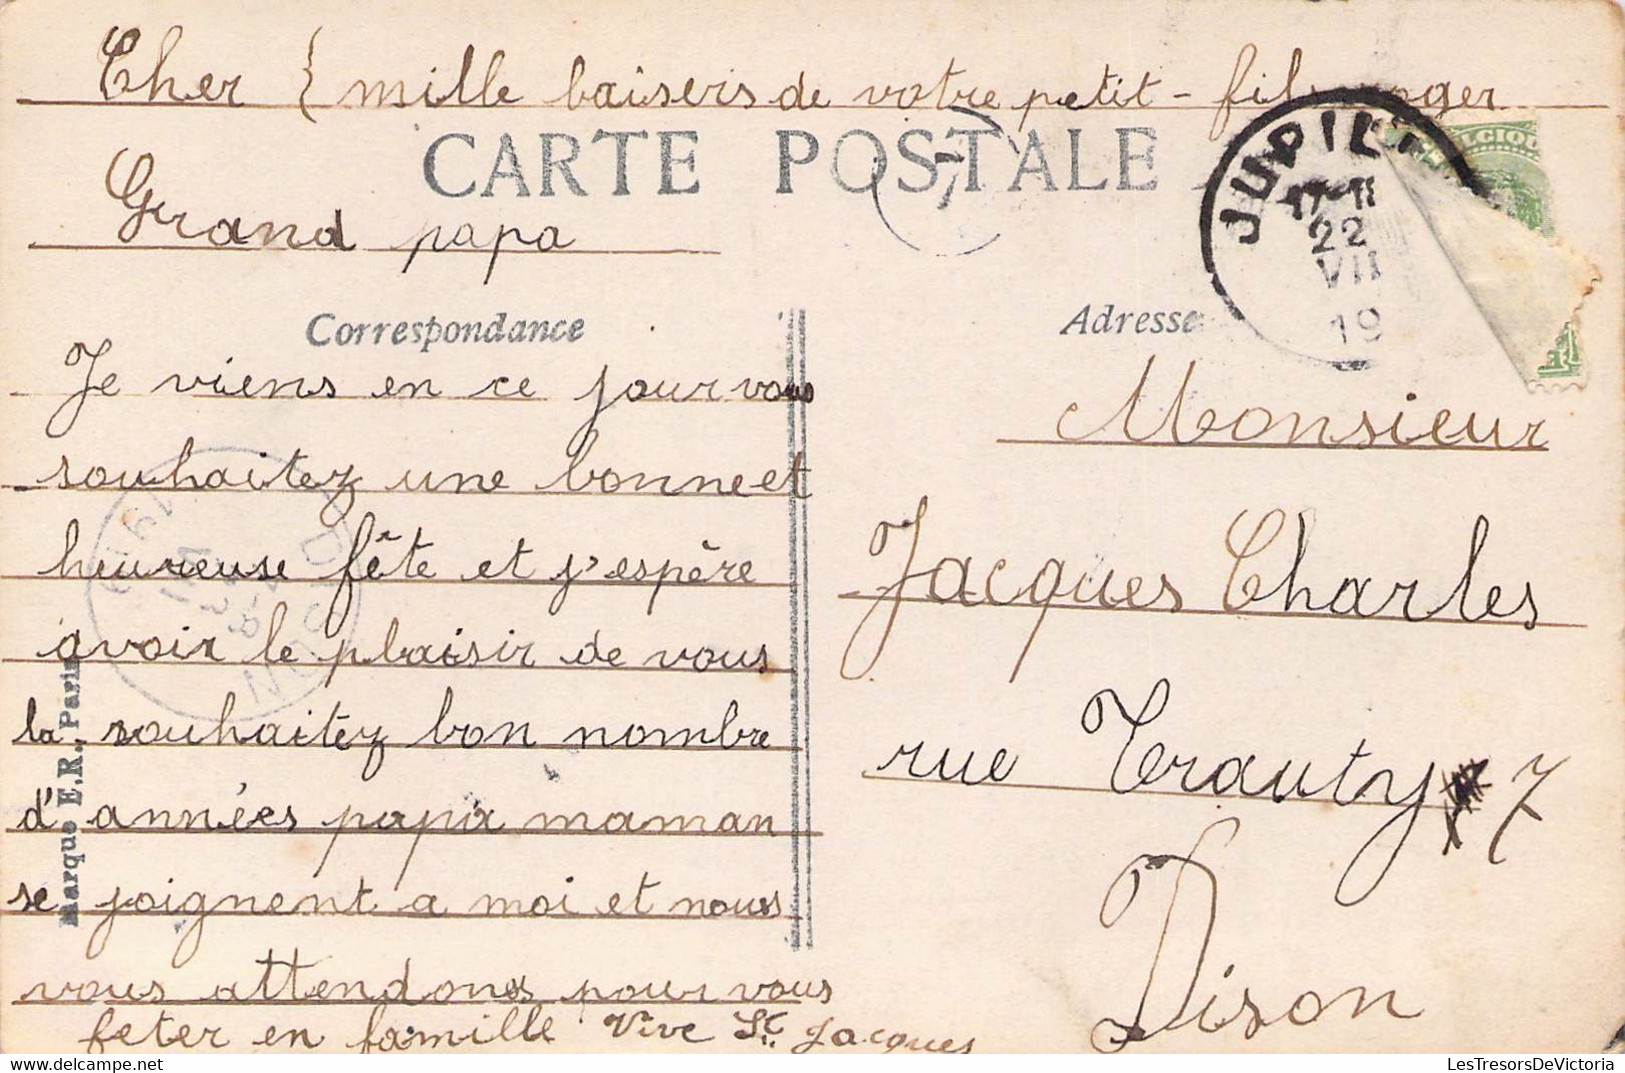 Cher } mille baisers de votre petit-fils Roger
CARTE POSTALE
Grand papa
Correspondance
Je viens en ce jour vous
souhaitez une bonne et
heureuse fête et j'espère
avoir le plaisir de vous
la souhaitez bon nombre
d'années papa maman
se joignent a moi et nous
vous attendons pour vous
feter en famille Vive St Jacques
Marque E.R., Paris
DISON
Adresse
JUPIL
17-II
22
VII
19
LGIQU
Monsieur
Jacques Charles
rue Trauty 7
Dison
LesTresorsDeVictoria
LesTresorsDeVictoria.com